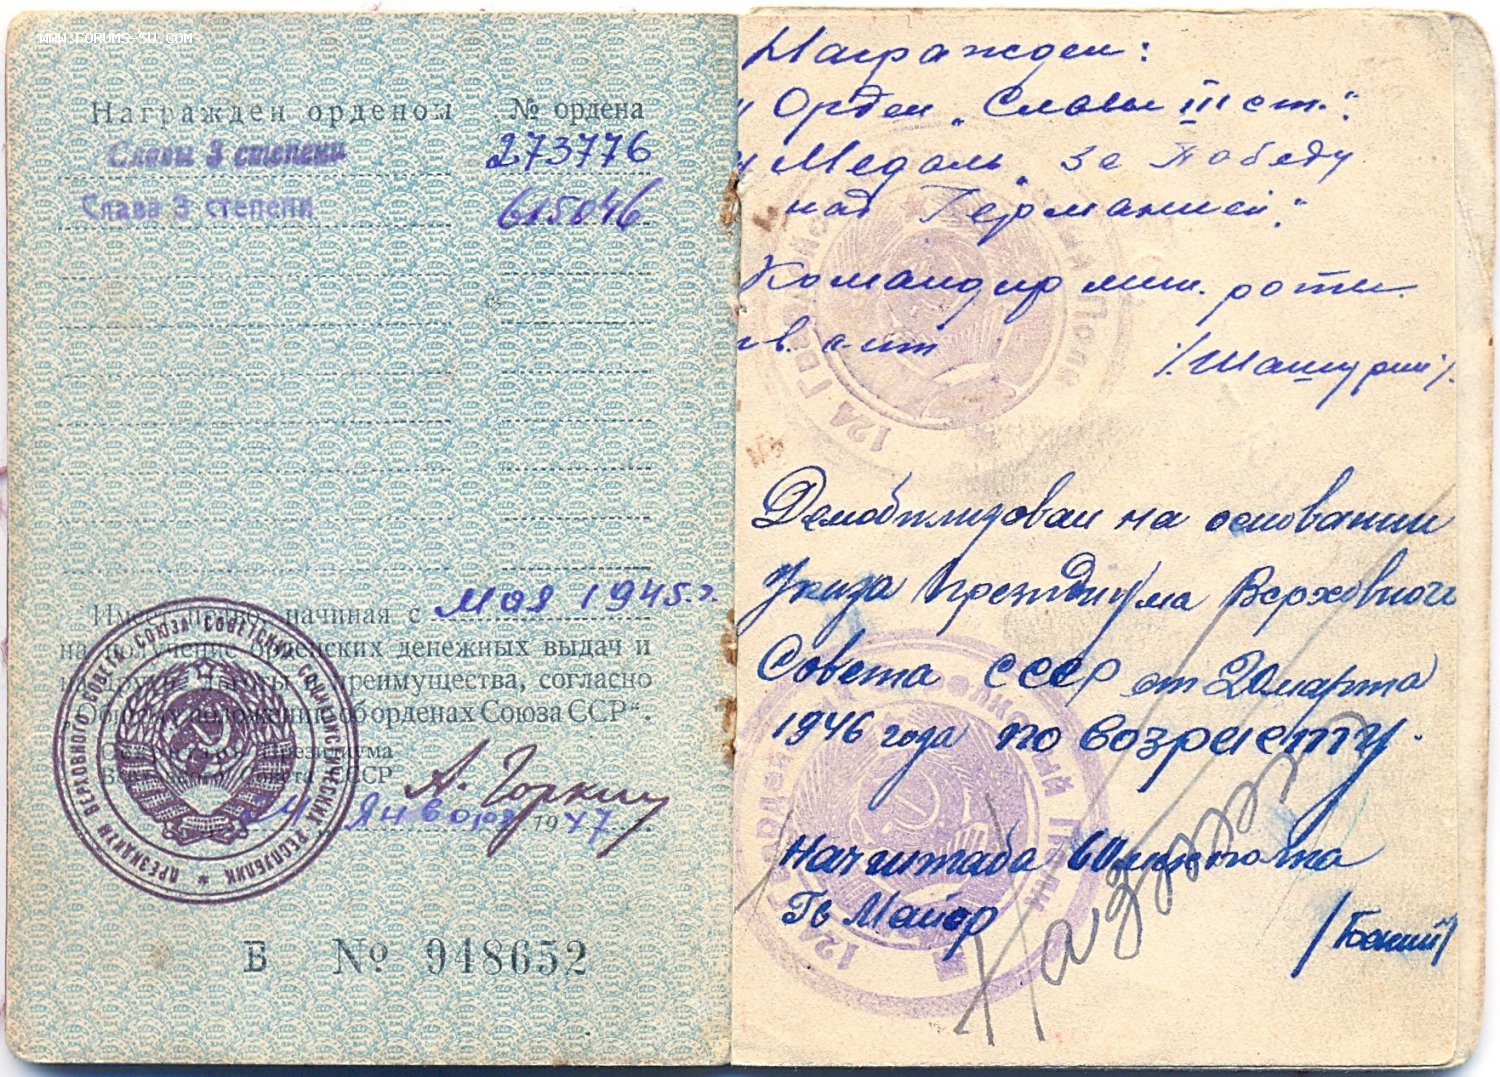 WWW.FORUMS-SU.COM
Награжден орденом № ордена
Славы 3 степени 273776
Слава 3 степени 615046
Имеет право, начиная с мая 1945 г.
на получение орденских денежных выдач и
на другие льготы и преимущества, согласно
„Общему положению об орденах Союза ССР“.
Секретарь Президиума
Верховного Совета СССР А. Горкин
января 1947
ПРЕЗИДИУМ ВЕРХОВНОГО СОВЕТА СОЮЗА СОВЕТСКИХ СОЦИАЛИСТИЧЕСКИХ РЕСПУБЛИК
Б № 948652
Награжден:
Орден „Славы III ст."
Медаль „За Победу
над Германией."
Командир мин. роты
гв. с-лт /Шашурин/.
124 Полк
Демобилизован на основании
Указа Президиума Верховного
Совета СССР от 20 марта
1946 года по возрасту.
Нач штаба полка
Гв Майор
124 Стрелковый Полк